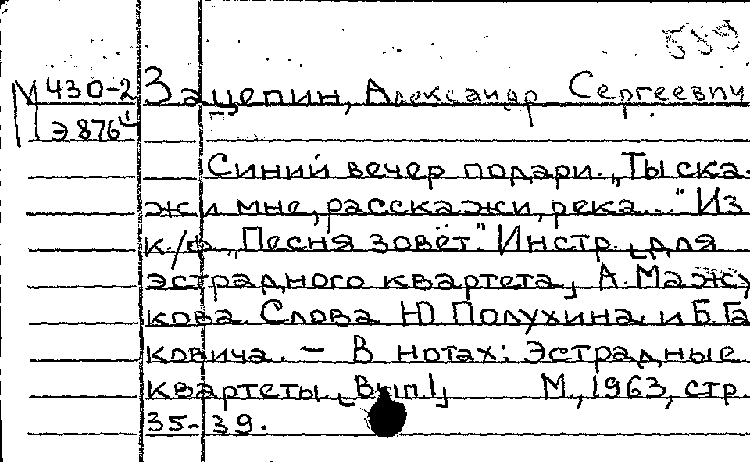 589
М 430-2 Зацепин, Александр Сергеевич
Э 876
Синий вечер подари. „Ты ска-
жи мне, расскажи, река..." Из
к/ф „Песня зовёт". Инстр. [для
эстрадного квартета] А. Мажу
кова. Слова Ю Полухина и Б. Га
ковича. – В нотах: Эстрадные
квартеты, [Вып 1] М., 1963, стр.
35-39.